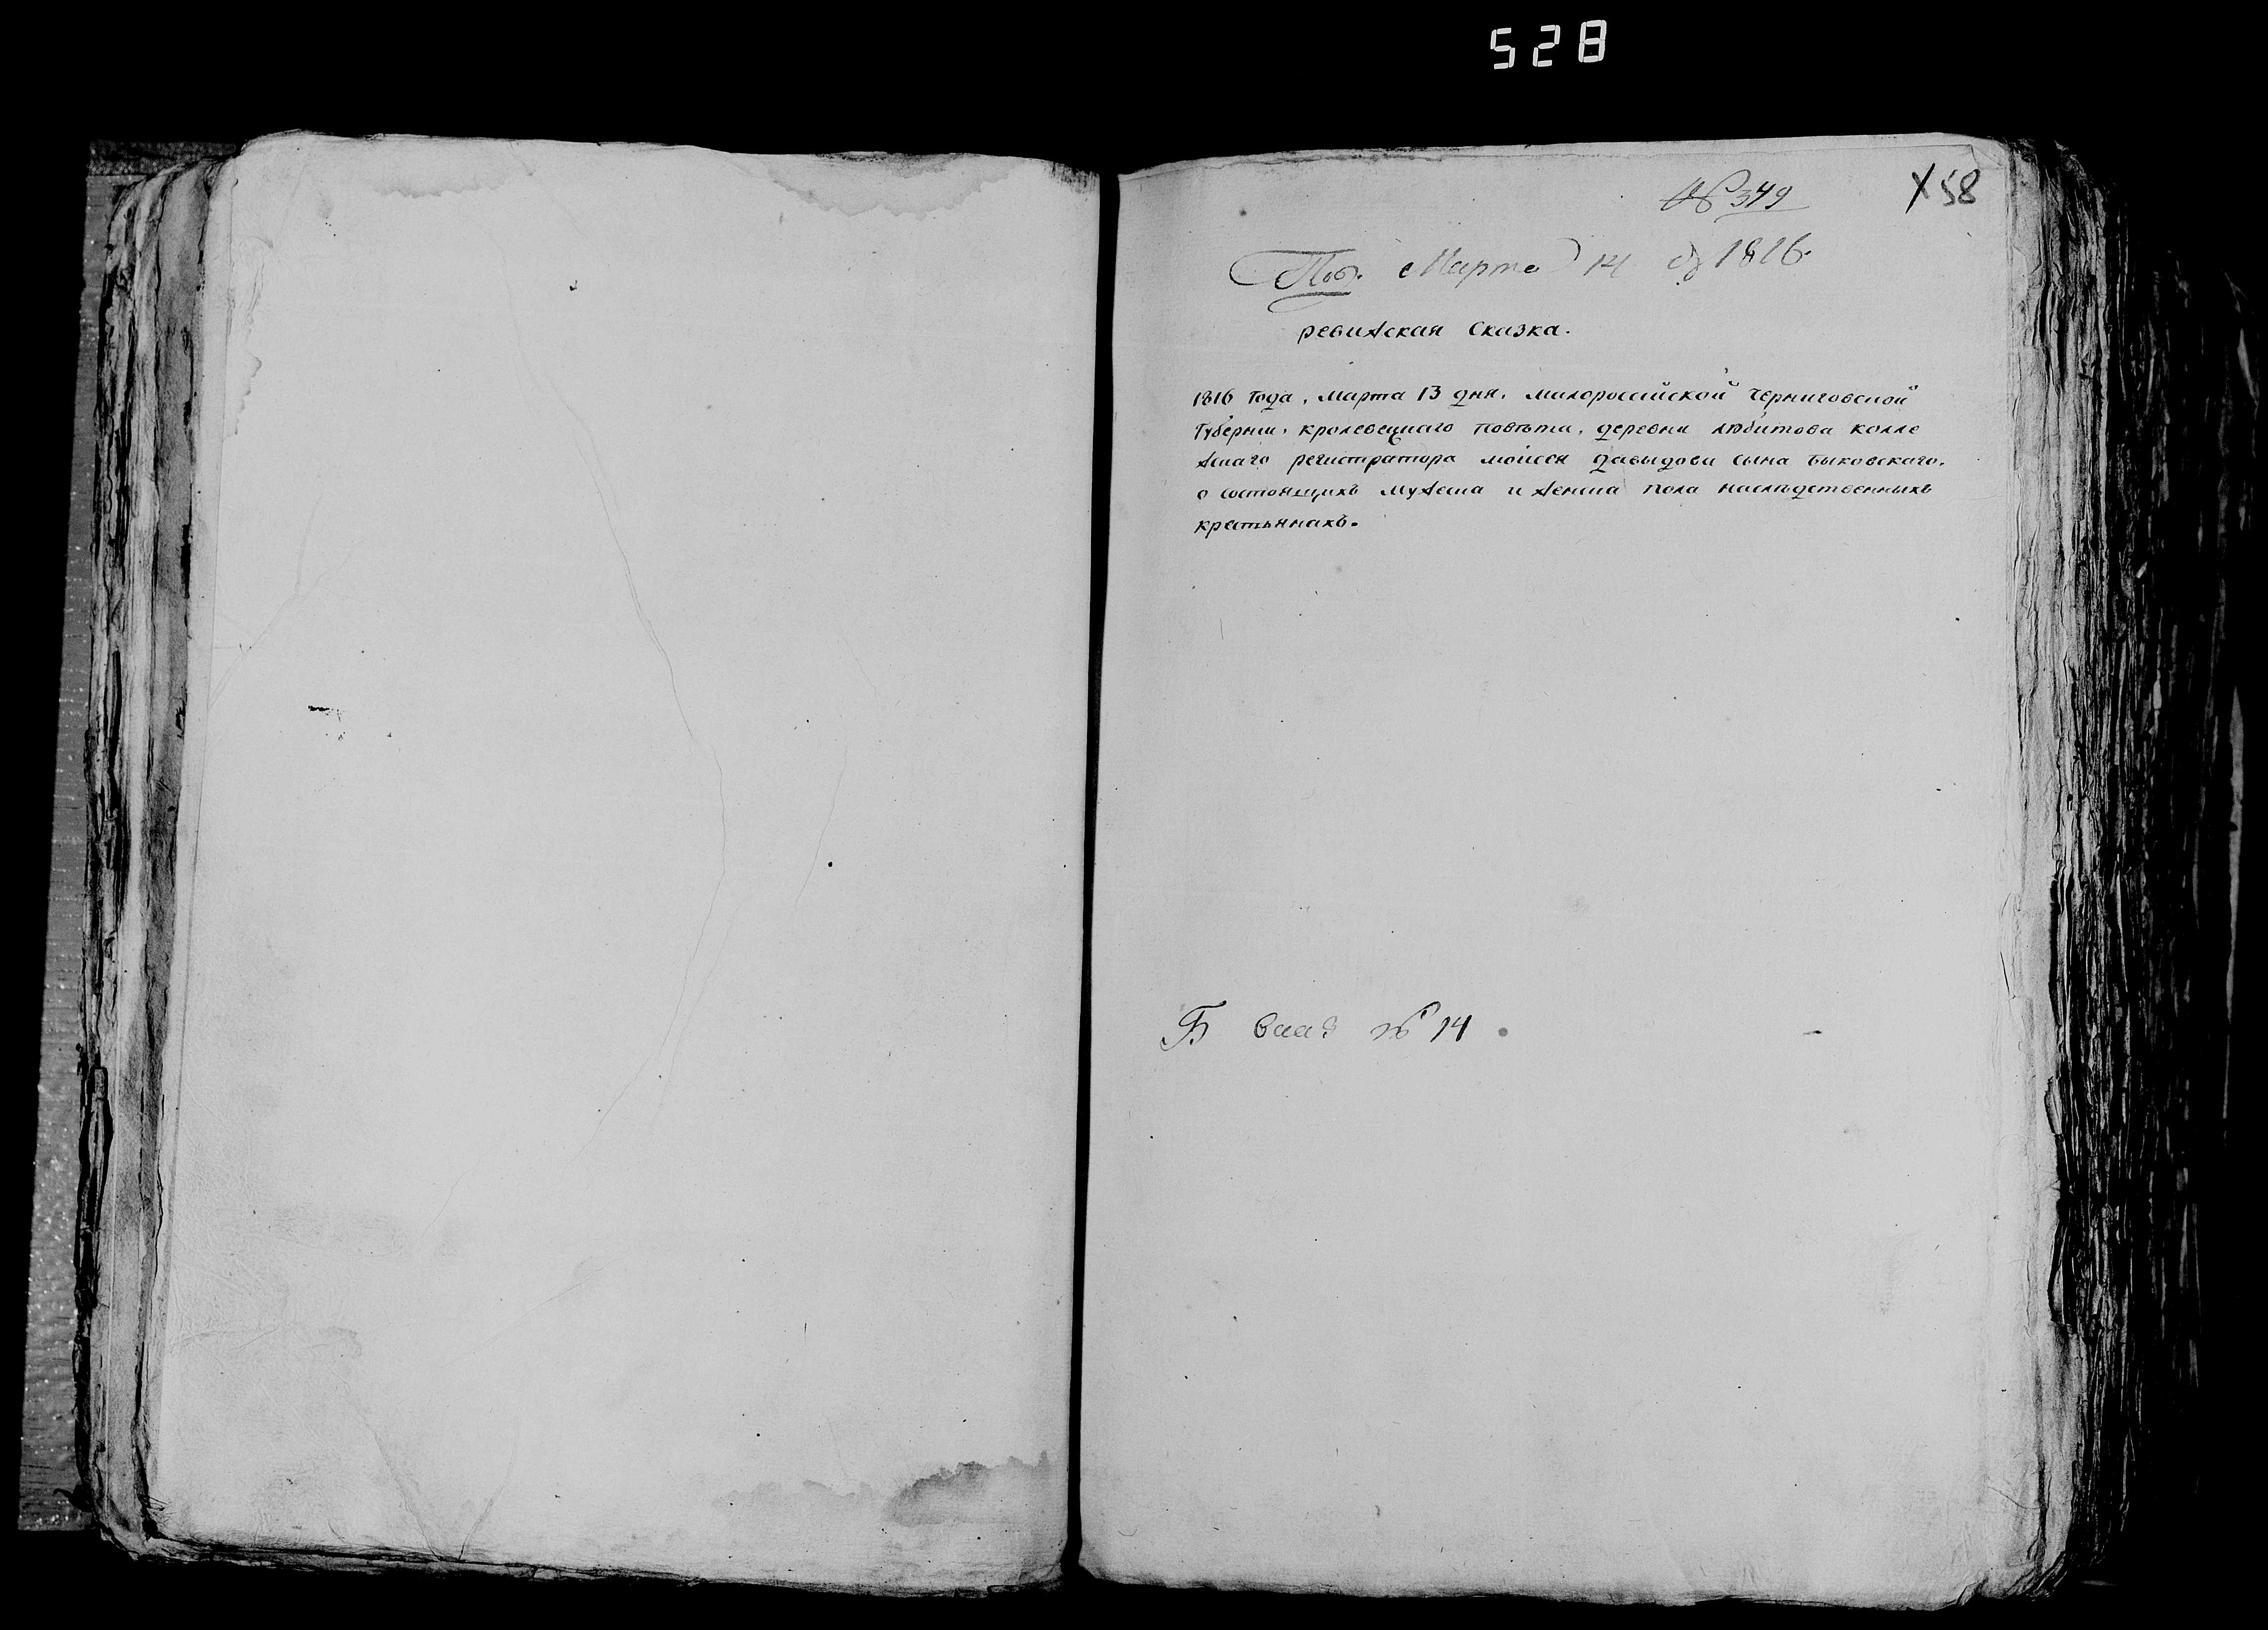 528
№ 349
Х58
Пол. Марта 14 д. 1816.
ревижская Сказка.
1816 Года, марта 13 дня. малороссийской Черниговской
Губернии. кролевецкаго повѣта, деревни любитова колле
жскаго регистратора моисея давыдова сына быковскаго.
о состоящихъ мужеска и женска пола наслѣдственныхъ
кретьянахъ.
Б № 14